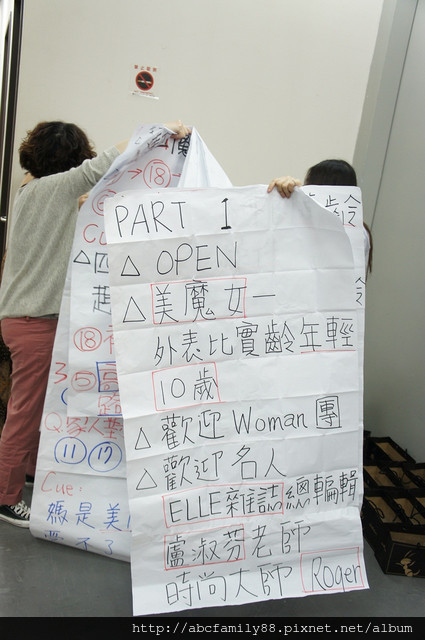 PART 1
△ OPEN
△ 美魔女－
外表比實齡年輕
10歲
△ 歡迎 Woman 團
△ 歡迎名人
ELLE雜誌總編輯
盧淑芬老師
時尚大師 Roger
齡
令
→ ⑱
△
⑱
3 ⑤
Q
⑪ ⑰
Cue:
媽是美
http://abcfamily88.pixnet.net/album